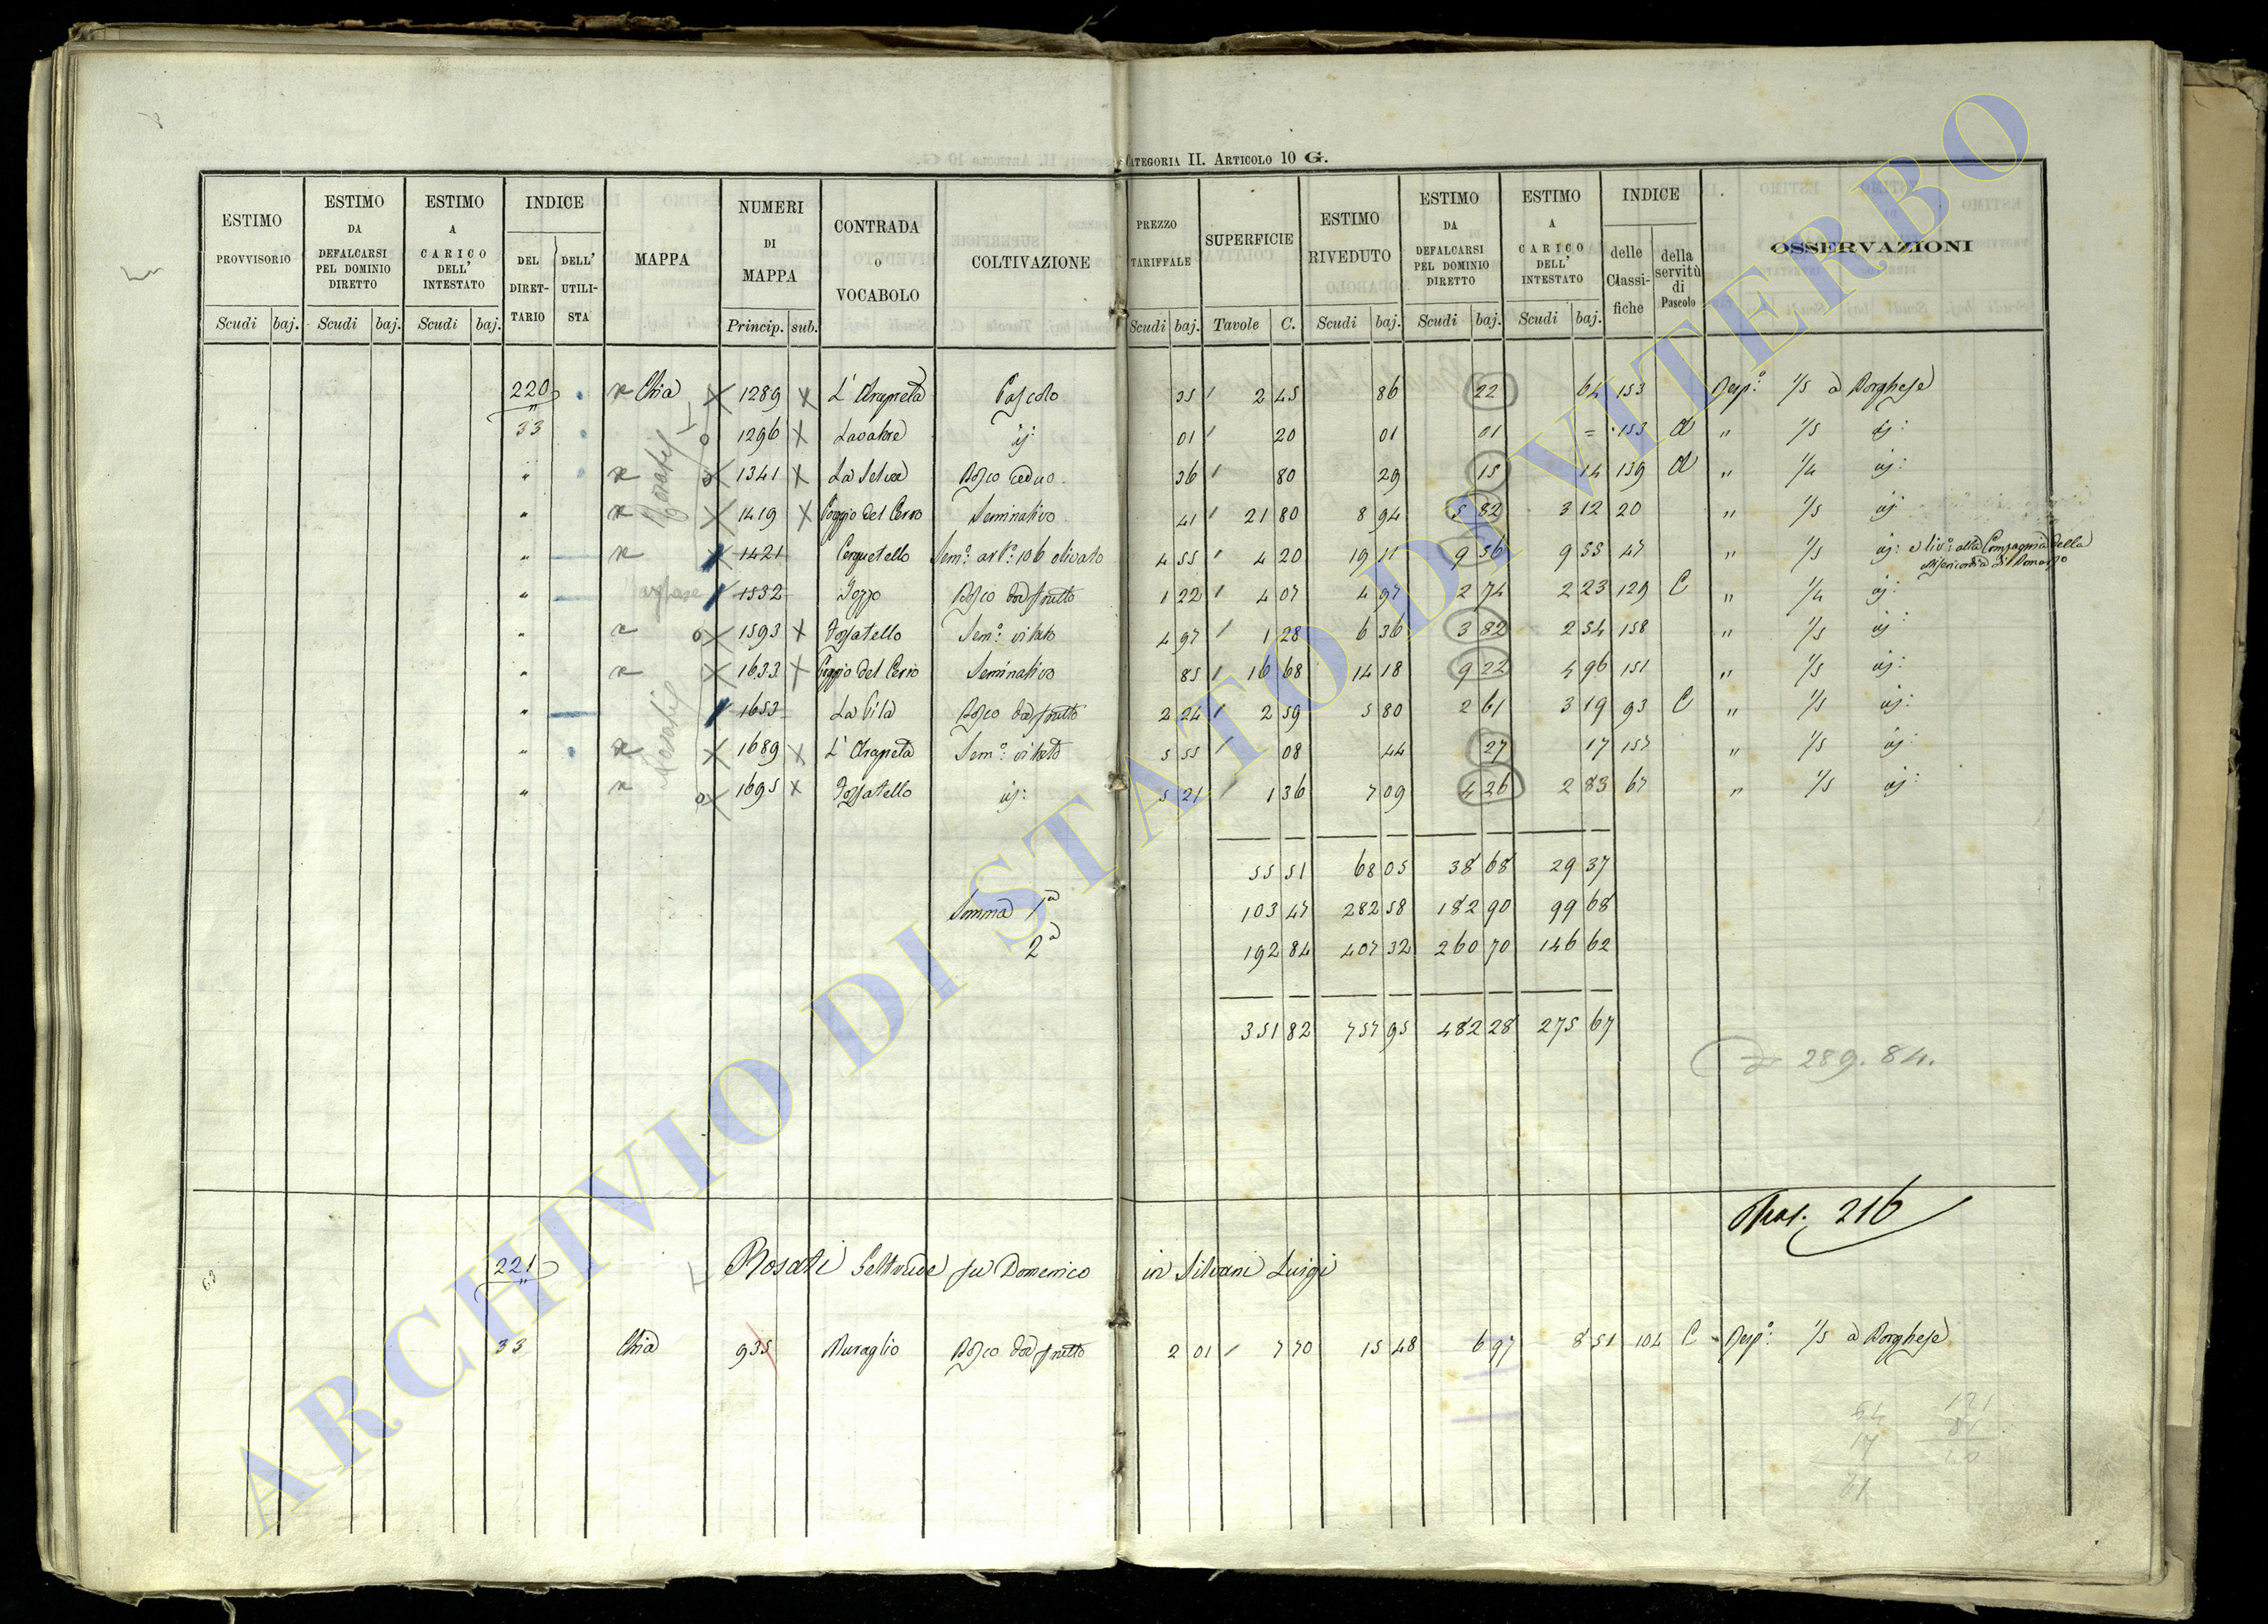 CATEGORIA II. ARTICOLO 10 G.
ESTIMO PROVVISORIO | ESTIMO DA DEFALCARSI PEL DOMINIO DIRETTO | ESTIMO A CARICO DELL' INTESTATO | INDICE DEL DIRETTARIO | DELL' UTILISTA | MAPPA | NUMERI DI MAPPA | CONTRADA O VOCABOLO | COLTIVAZIONE | PREZZO TARIFFALE | SUPERFICIE | ESTIMO RIVEDUTO | ESTIMO DA DEFALCARSI PEL DOMINIO DIRETTO | ESTIMO A CARICO DELL' INTESTATO | INDICE delle Classifiche | della servitù di Pascolo | OSSERVAZIONI
Scudi baj. Scudi baj. Scudi baj. Princip. sub. Scudi baj. Tavole C. Scudi baj. Scudi baj. Scudi baj.
220 Chia 1289 L' Arapreta Pascolo 35 2 45 86 22 64 153 Risp: 1/5 a Borghese
33 1296 Lavatore ij: 01 20 01 01 = 153 A " 1/5 ij:
" 1341 La Selva Bosco ceduo 36 80 29 15 14 139 A " 1/4 ij:
" 1419 Poggio del Cerro Seminativo 41 21 80 8 94 5 82 3 12 20 " 1/5 ij:
" 1421 Cerquetello Sem: 4 55 4 20 19 11 9 56 9 55 47 " 1/5 ij: e liv: alla Compagnia della
Misericordia di Bomarzo
" 1532 Pozzo Bosco da frutto 1 22 4 07 4 97 2 74 2 23 129 C " 1/4 ij:
" 1593 Fossatello Sem: vitato 4 97 1 28 6 36 3 82 2 54 158 " 1/5 ij:
" 1633 Poggio del Cerro Seminativo 85 16 68 14 18 9 22 4 96 151 " 1/5 ij:
" 1653 La Pila Bosco da frutto 2 24 2 59 5 80 2 61 3 19 93 C " 1/5 ij:
" 1689 L' Arapreta Sem: vitato 5 55 08 44 27 17 157 " 1/5 ij:
" 1695 Fossatello ij: 5 21 1 36 7 09 4 26 2 83 67 " 1/5 ij:
55 51 68 05 38 68 29 37
Somma 1a 103 47 282 58 182 90 99 68
2a 192 84 407 32 260 70 146 62
351 82 757 95 482 28 275 67
289.84.
216
221 Rosati Geltrude fu Domenico in Silvani Luigi
33 Chia 935 Muraglio Bosco da frutto 2 01 7 70 15 48 6 97 8 51 104 C Risp: 1/5 a Borghese
ARCHIVIO DI STATO DI VITERBO